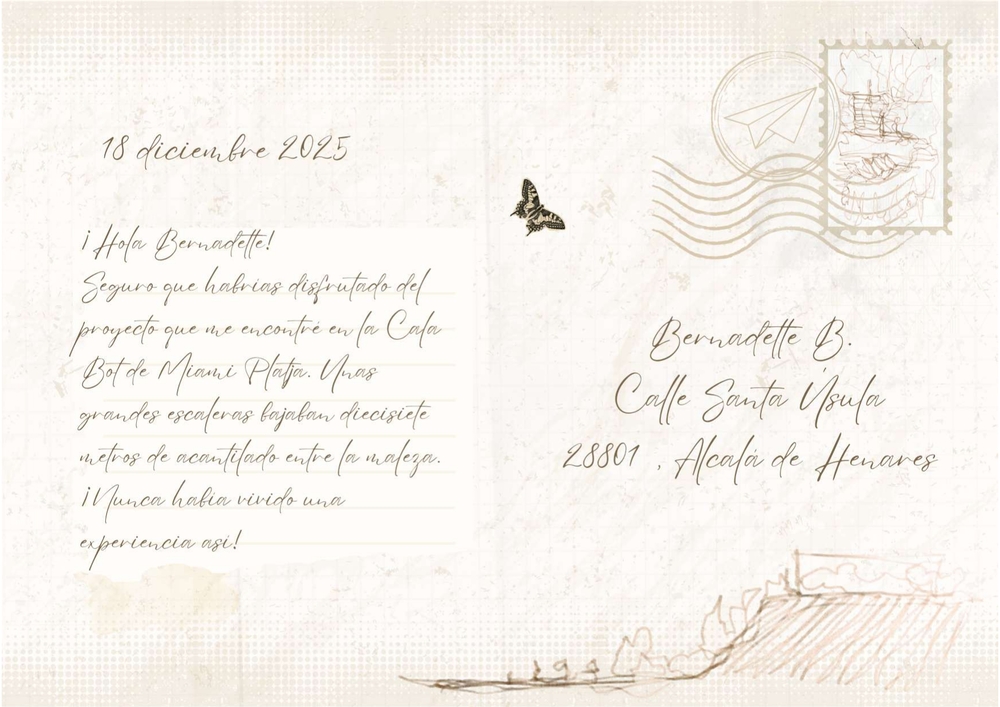 18 diciembre 2025
¡Hola Bernadette!
Seguro que habrías disfrutado del
proyecto que me encontré en la Cala
Bot de Miami Platja. Unas
grandes escaleras bajaban diecisiete
metros de acantilado entre la maleza.
¡Nunca había vivido una
experiencia así!
Bernadette B.
Calle Santa Úsula
28801 , Alcalá de Henares